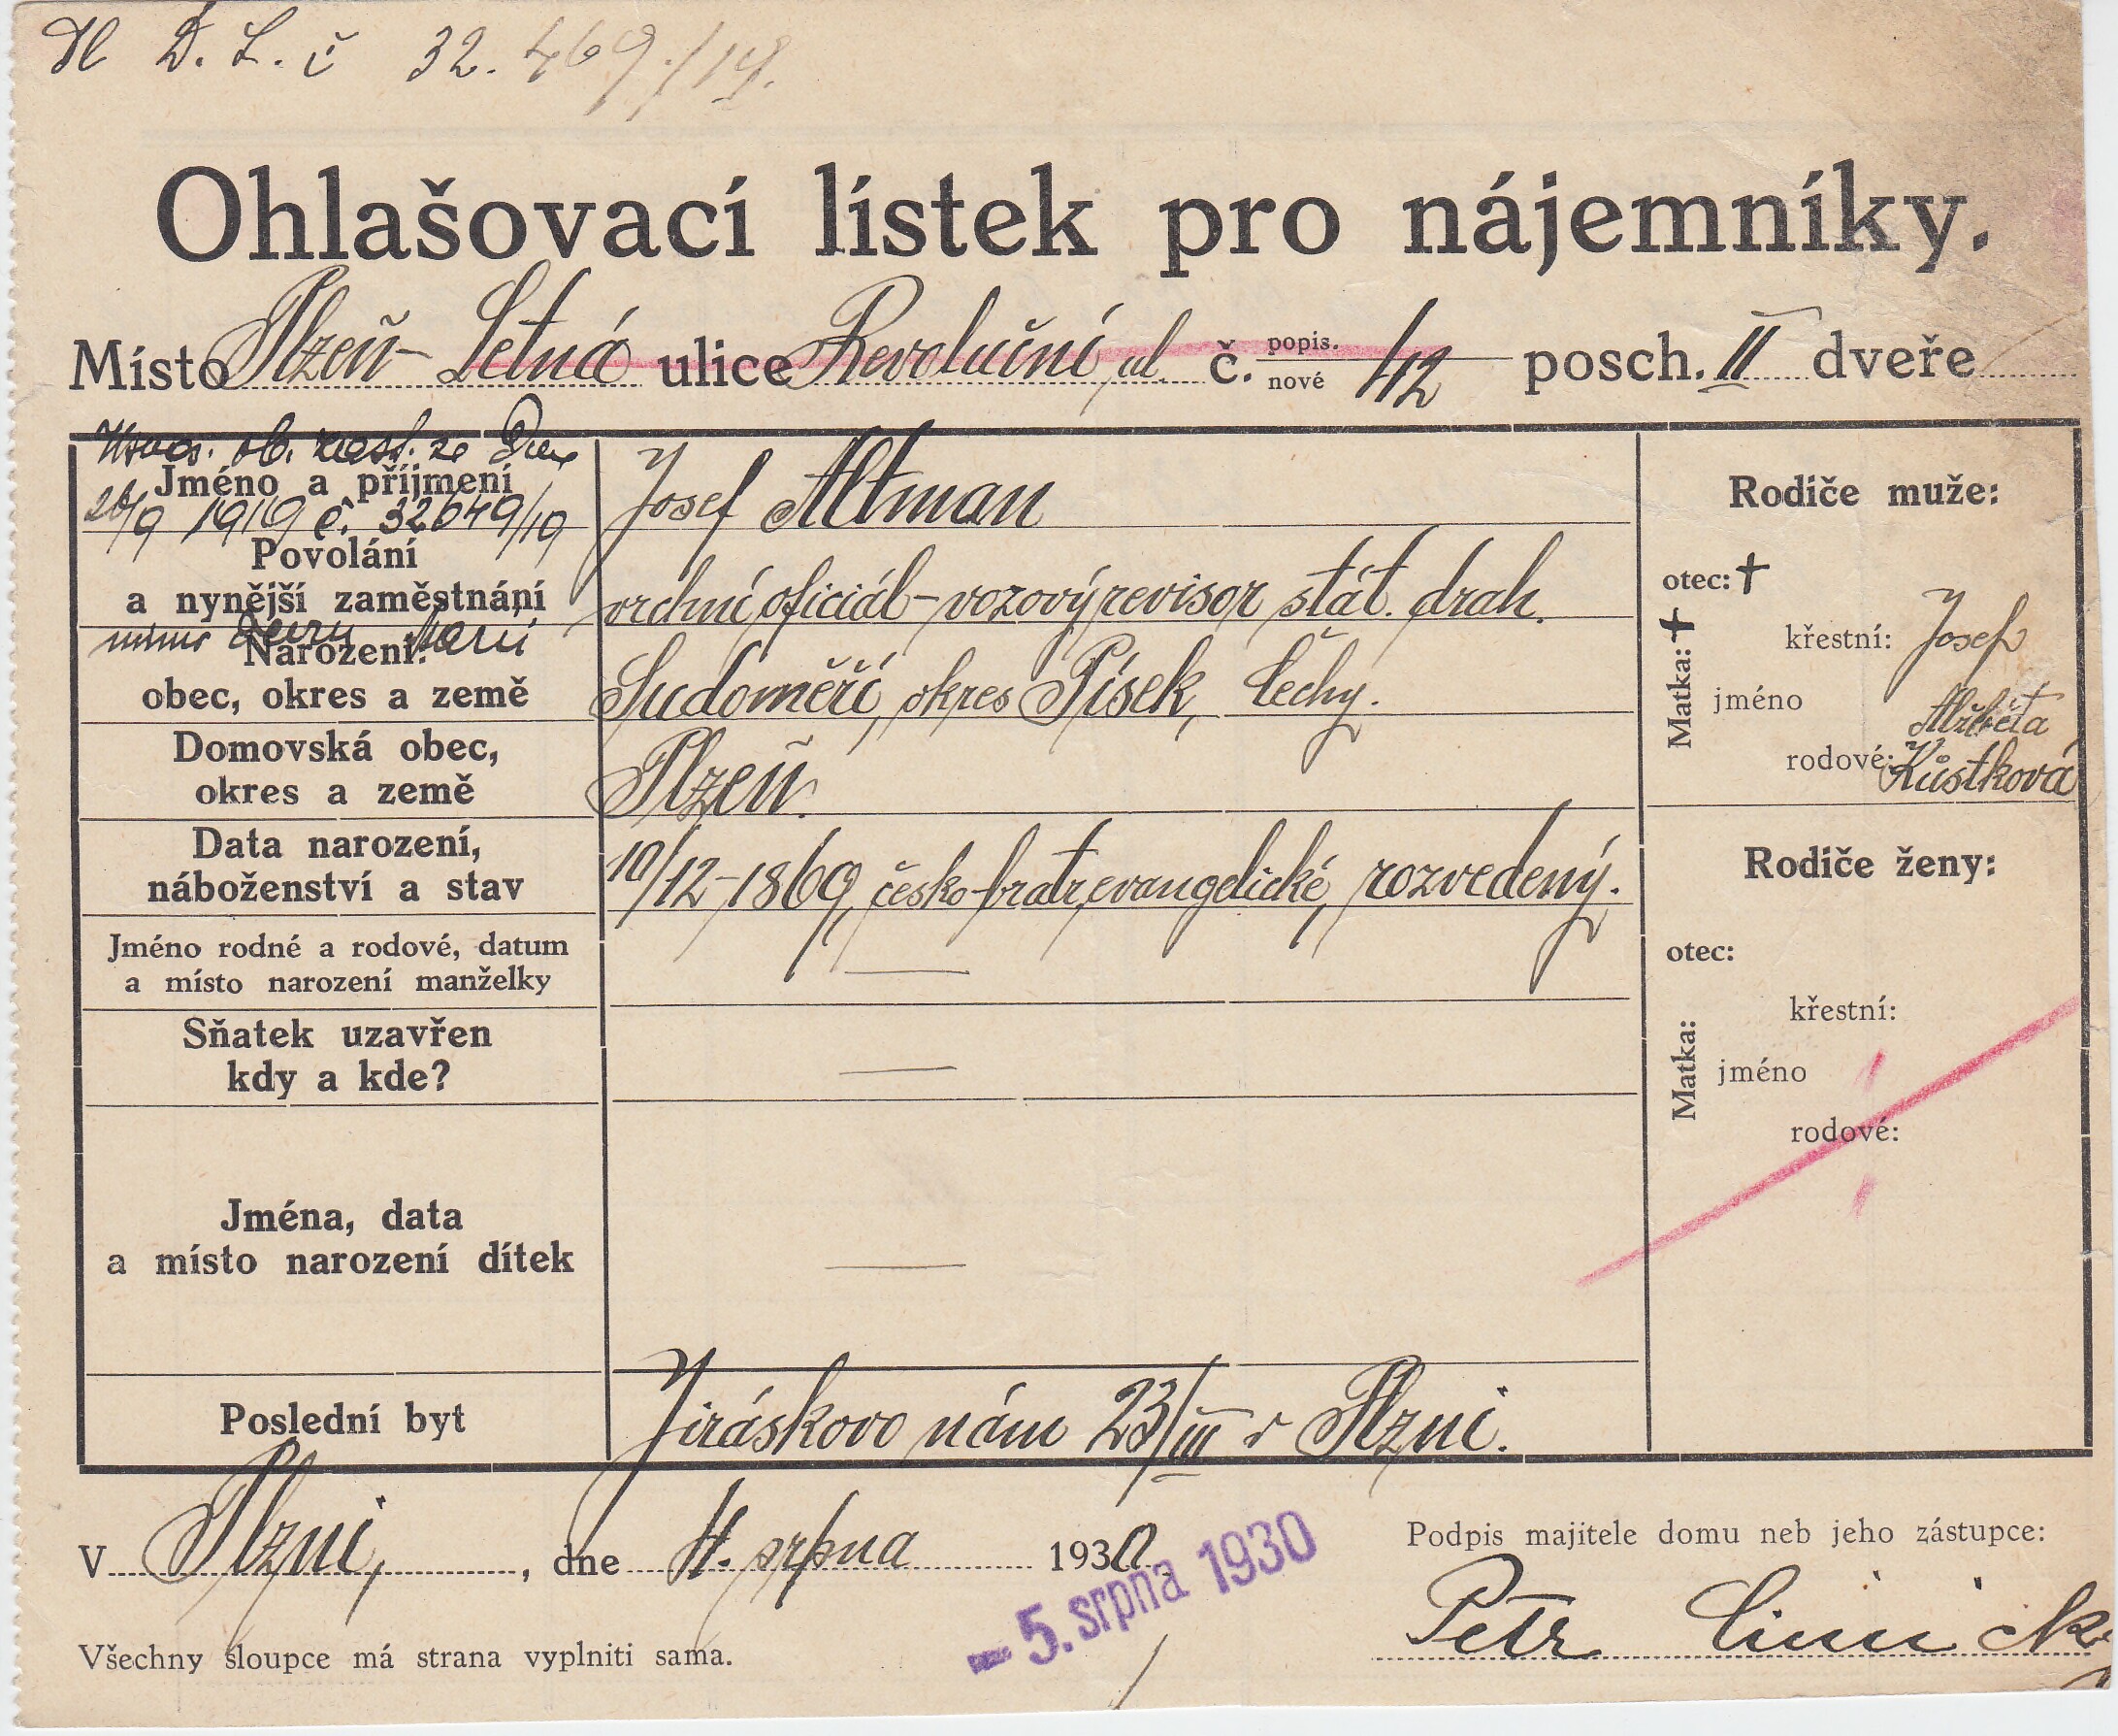 D. L. č 32.469/19.
Ohlašovací lístek pro nájemníky.
Místo Plzeň-Letná ulice Revoluční ul. č. popis. nové 42 posch. II dveře
ob. ze dne
Jméno a příjmení Josef Altman
26/9 1919 č. 32649/19
Povolání
a nynější zaměstnání vrchní oficiál-vozový revisor stát. drah.
mimo
Narození:
obec, okres a země Sudoměři, okres Písek, Čechy.
Domovská obec,
okres a země Plzeň.
Data narození,
náboženství a stav 10/12-1869, česko-bratr, evangelické, rozvedený.
Jméno rodné a rodové, datum
a místo narození manželky —
Sňatek uzavřen
kdy a kde? —
Jména, data
a místo narození dítek —
Poslední byt Jiráskovo nám 23/III v Plzni.
Rodiče muže:
otec: †
Matka: †
křestní: Josef
jméno Alžběta
rodové: Kůstková
Rodiče ženy:
otec:
Matka:
křestní:
jméno
rodové:
V Plzni, , dne 4. srpna 1930.
– 5. srpna 1930
Podpis majitele domu neb jeho zástupce:
Petr
Všechny sloupce má strana vyplniti sama.